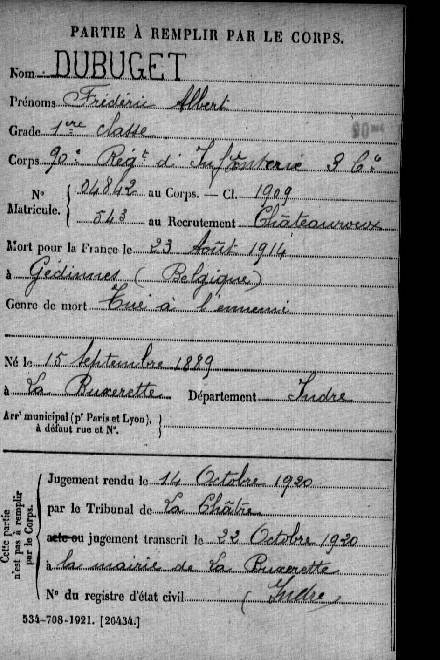 PARTIE À REMPLIR PAR LE CORPS.
Nom DUBUGET
Prénoms Frédéric Albert
Grade 1ère classe
Corps 90e Régt d'Infanterie 8 Cie
N° Matricule. { 04842 au Corps. — Cl. 1909
543 au Recrutement Châteauroux
Mort pour la France le 23 Août 1914
à Gédinnes (Belgique)
Genre de mort Tué à l'ennemi
Né le 15 Septembre 1889
à La Buxerette Département Indre
Arrt municipal (pr Paris et Lyon), à défaut rue et N°. }
Cette partie n'est pas à remplir par le Corps.
Jugement rendu le 14 Octobre 1920
par le Tribunal de La Châtre
acte ou jugement transcrit le 22 Octobre 1920
à la mairie de La Buxerette
N° du registre d'état civil (Indre)
534-708-1921. [26434.]